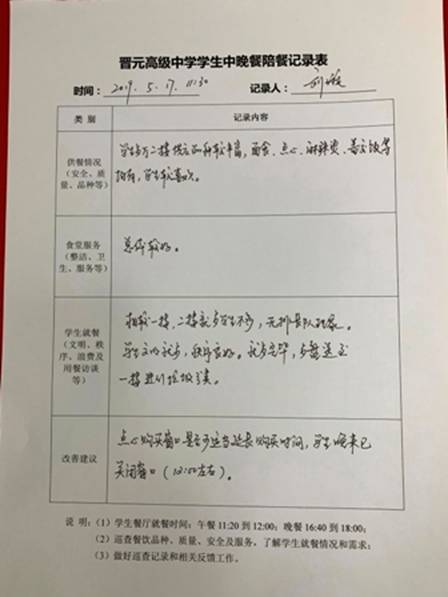 晋元高级中学学生中晚餐陪餐记录表
时间： 2019. 5. 17. 11:30 记录人：
类别 记录内容
供餐情况
（安全、质
量、品种等）
学生餐厅二楼供应品种较丰富，面食、点心、麻辣烫、盖交饭等
均有，学生较喜欢。
食堂服务
（整洁、卫
生、服务等）
总体较好。
学生就餐
（文明、秩
序、浪费及
用餐访谈
等）
相较一楼，二楼就餐学生不多，无排长队现象。
学生文明就餐，秩序良好。就餐完毕，餐盘送至
一楼进行垃圾分类。
改善建议
点心购买窗口是否可适当延长购买时间，学生晚来已
关闭窗口（12:00左右）。
说 明：（1）学生餐厅就餐时间：午餐 11:20 到 12:00；晚餐 16:40 到 18:00；
（2）巡查餐饮品种、质量、安全及服务，了解学生就餐情况和需求；
（3）做好巡查记录和相关反馈工作。